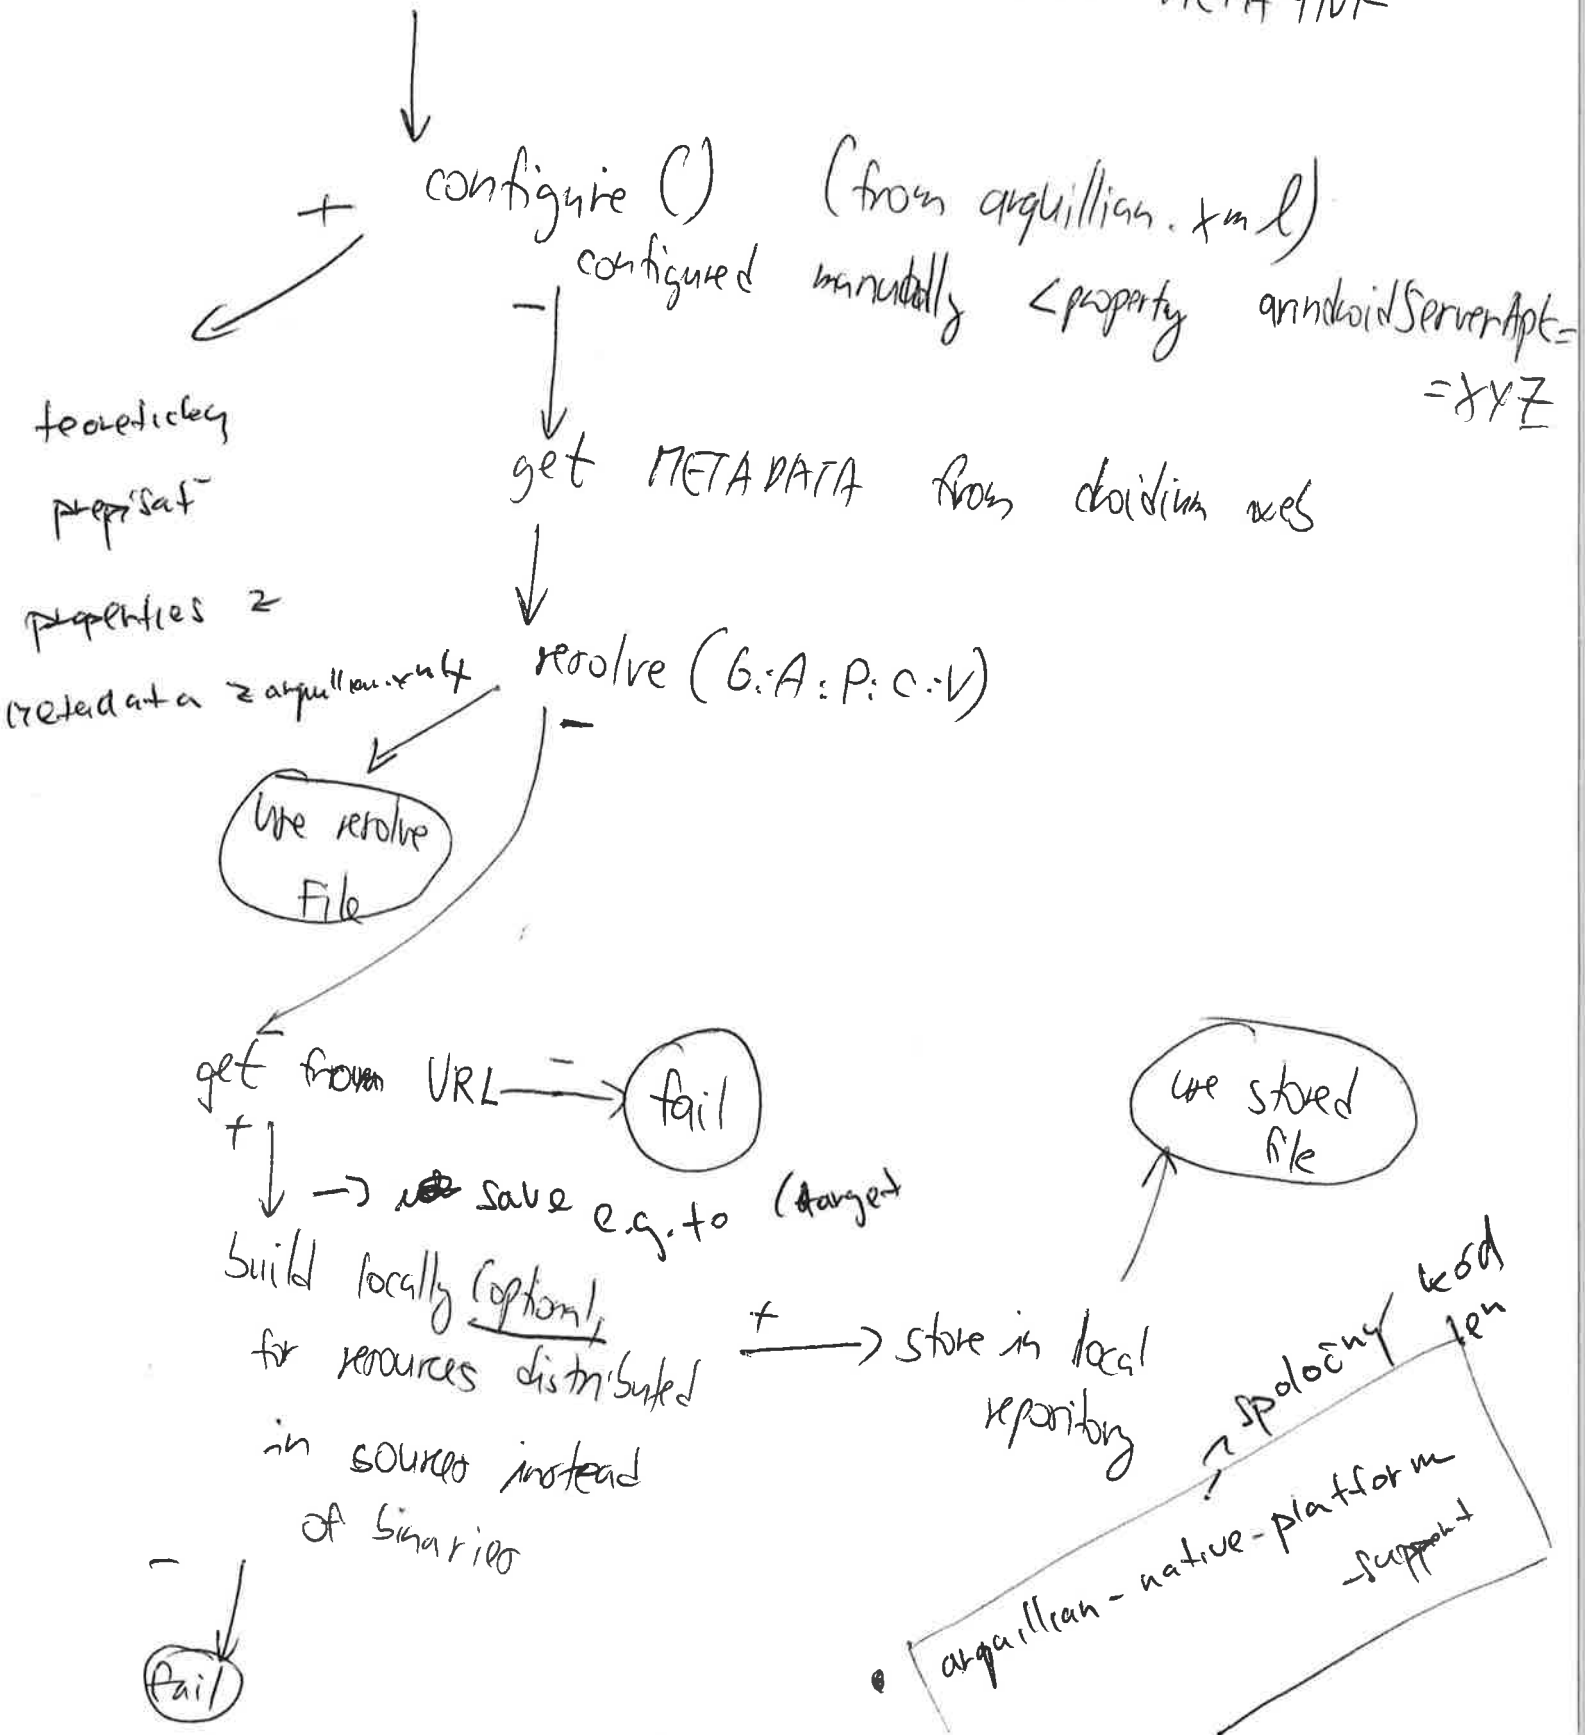 configure () (from arquillian.xml)
+
configured manually <property anndroidServerApk=
=XYZ
-
teoreticky
prepísať
properties z
metadata z arquillian.xml
get METADATA from droidium web
resolve (G:A:P:C:V)
+
-
use resolve
File
get from URL
-
fail
+
-> save e.g. to (target
use stored
file
build locally (optional,
for resources distributed
in sources instead
of binaries
+
store in local
repository
-
fail
? spoločný kód
ten
arquillian-native-platform
-support